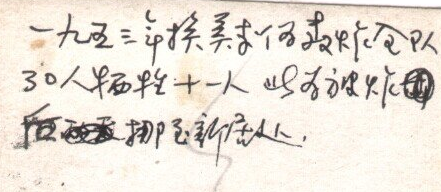 一九五三年挨美军何轰炸全队
30人牺牲十一人 此为被炸
后 挪至新居处.